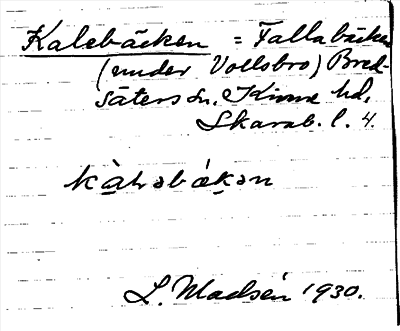 Kalebäcken = Fallabäcken
(under Vollsbro) Bred-
säters sn. Kinne hd,
Skarab. l. 4.
kàlabǽkən
L. Madsén 1930.